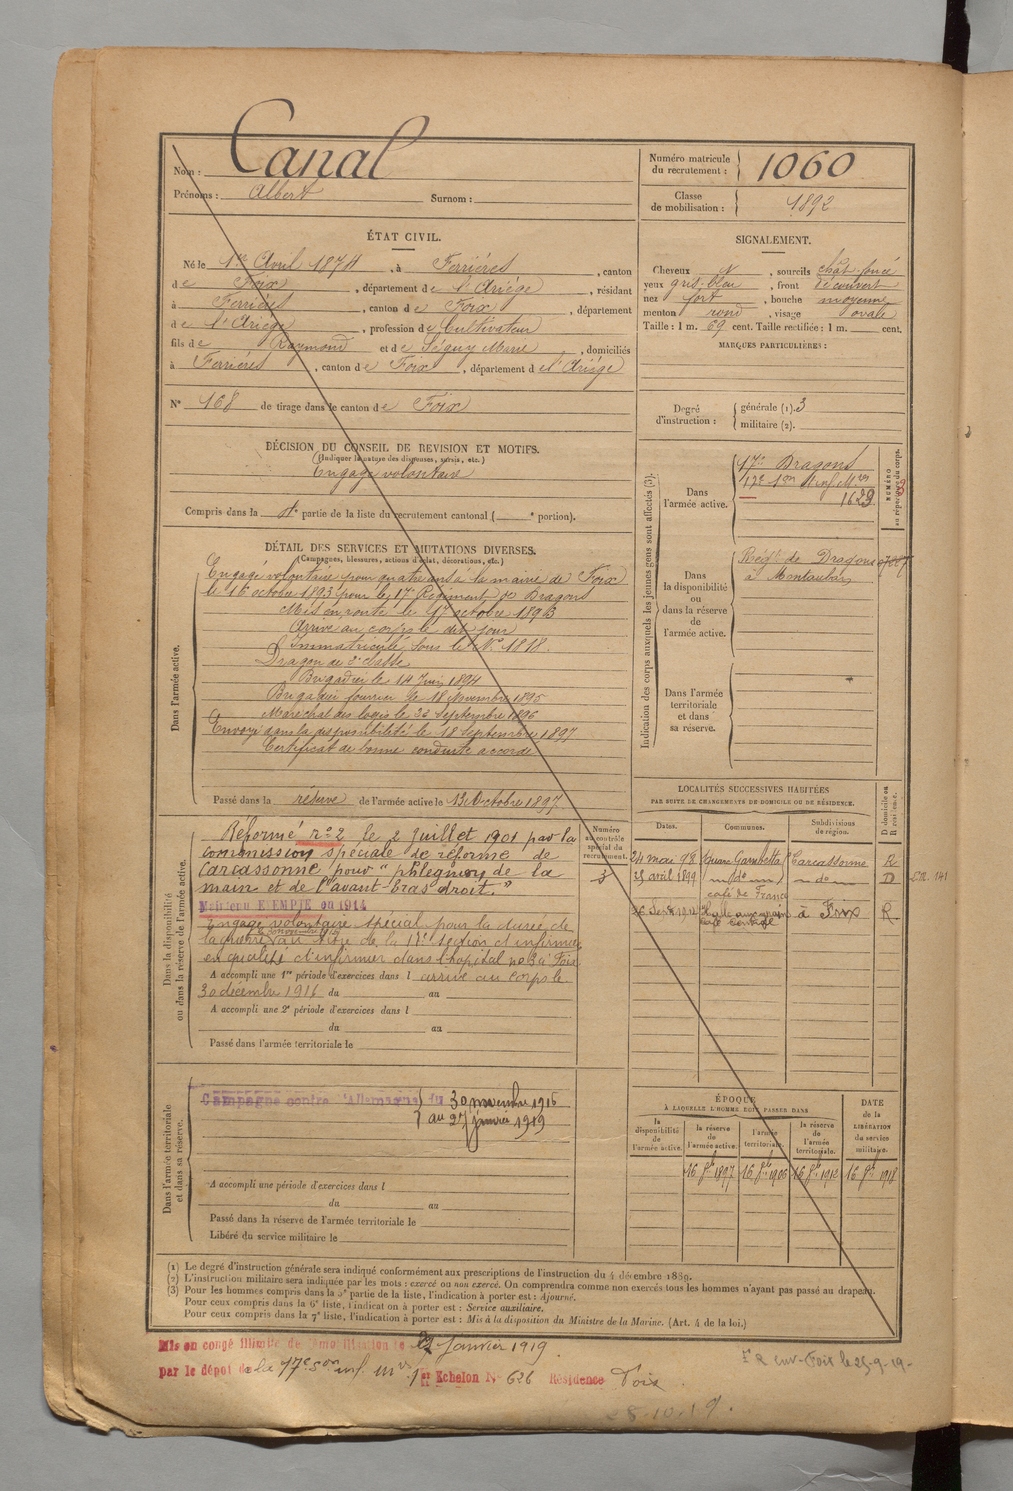 Nom : Canal
Prénoms : Albert Surnom :
Numéro matricule du recrutement : 1060
Classe de mobilisation : 1892
ÉTAT CIVIL.
Né le 1er Avril 1874, à Ferrières, canton
de Foix, département de l'Ariège, résidant
à Ferrières, canton de Foix, département
de l'Ariège, profession de Cultivateur
fils de Raymond et de Séguy Marie, domiciliés
à Ferrières, canton de Foix, département de l'Ariège
N° 168 de tirage dans le canton de Foix
SIGNALEMENT.
Cheveux N, sourcils chât. foncé
yeux gris-bleu, front découvert
nez fort, bouche moyenne
menton rond, visage ovale
Taille : 1 m. 69 cent. Taille rectifiée : 1 m. cent.
MARQUES PARTICULIÈRES :
Degré d'instruction : générale (1). 3
militaire (2).
DÉCISION DU CONSEIL DE REVISION ET MOTIFS.
(Indiquer la nature des dispenses, sursis, etc.)
Engagé volontaire
Compris dans la partie de la liste du recrutement cantonal ( e portion).
DÉTAIL DES SERVICES ET MUTATIONS DIVERSES.
(Campagnes, blessures, actions d'éclat, décorations, etc.)
Dans l'armée active.
Engagé volontaire pour quatre ans à la mairie de Foix
le 16 octobre 1893 pour le 17e Régiment de Dragons
Mis en route le 17 octobre 1893
Arrivé au corps le dit jour
Immatriculé sous le N° 1818.
Dragon de 2e classe
Brigadier le 14 Juin 1894
Brigadier fourrier le 18 Novembre 1895
Maréchal des logis le 22 Septembre 1896
Envoyé dans la disponibilité le 18 Septembre 1897
Certificat de bonne conduite accordé
Passé dans la réserve de l'armée active le 13 Octobre 1897
Indication des corps auxquels les jeunes gens sont affectés (3).
NUMÉRO au répertoire du corps.
Dans l'armée active.
17e Dragons
17e Son Inf. M.res
1623
Dans la disponibilité ou dans la réserve de l'armée active.
Régt de Dragons
à Montauban
Dans l'armée territoriale et dans sa réserve.
Dans la disponibilité ou dans la réserve de l'armée active.
Numéro au contrôle spécial du recrutement.
3
Réformé n° 2 le 2 juillet 1901 par la
commission spéciale de réforme de
Carcassonne pour "phlegmon de la
main et de l'avant-bras droit."
Maintenu EXEMPTÉ en 1914
Engagé volontaire spécial pour la durée de
la guerre au titre de la 17e section d'infirmiers
en qualité d'infirmier dans l'hôpital n° 3 à Foix
A accompli une 1re période d'exercices dans l arrivé au corps le
30 décembre 1916 du au
A accompli une 2e période d'exercices dans l
du au
Passé dans l'armée territoriale le
LOCALITÉS SUCCESSIVES HABITÉES
PAR SUITE DE CHANGEMENTS DE DOMICILE OU DE RÉSIDENCE.
Dates. Communes. Subdivisions de région. D domicile ou R résidence.
24 mai 98 square Gambetta Carcassonne R
25 avril 1899 do do D
café de France
Halle aux grains à Foix R
café central
Dans l'armée territoriale et dans sa réserve.
Campagne contre l'Allemagne du 30 novembre 1916
au 27 janvier 1919
A accompli une période d'exercices dans l
du au
Passé dans la réserve de l'armée territoriale le
Libéré du service militaire le
ÉPOQUE
À LAQUELLE L'HOMME DOIT PASSER DANS
DATE de la LIBÉRATION du service militaire.
la disponibilité de l'armée active. la réserve de l'armée active. l'armée territoriale. la réserve de l'armée territoriale.
16 8bre 1897 16 8bre 1906 16 8bre 1912 16 8bre 1918
(1) Le degré d'instruction générale sera indiqué conformément aux prescriptions de l'instruction du 4 décembre 1889.
(2) L'instruction militaire sera indiquée par les mots : exercé ou non exercé. On comprendra comme non exercés tous les hommes n'ayant pas passé au drapeau.
(3) Pour les hommes compris dans la 5e partie de la liste, l'indication à porter est : Ajourné.
Pour ceux compris dans la 6e liste, l'indication à porter est : Service auxiliaire.
Pour ceux compris dans la 7e liste, l'indication à porter est : Mis à la disposition du Ministre de la Marine. (Art. 4 de la loi.)
Mis en congé illimité de démobilisation le 27 Janvier 1919.
par le dépôt de la 17e son inf. mres 1er Echelon N° 626 Résidence Foix
Foix le 25-9-19-
28.10.19.